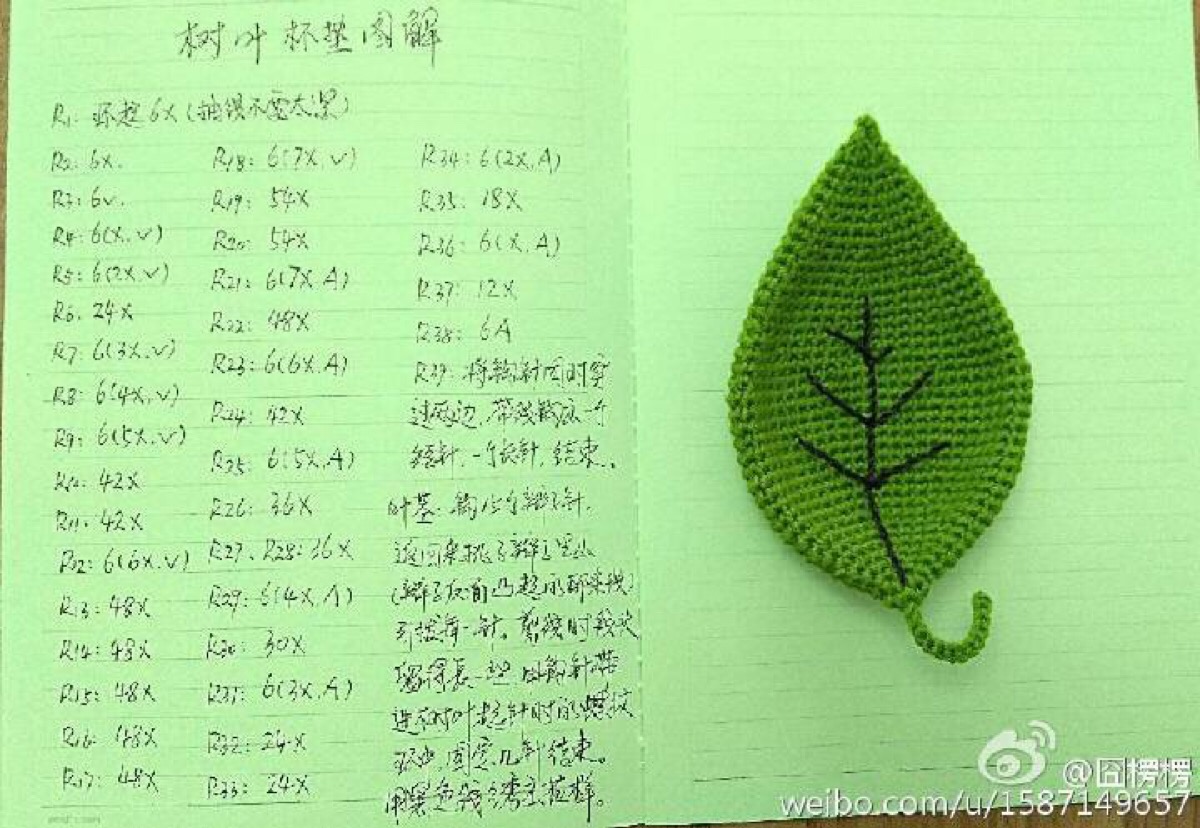 树叶杯垫图解
R1: 环起6X(抽线不要太紧)
R2: 6X.
R3: 6V.
R4: 6(X.V)
R5: 6(2X.V)
R6. 24X
R7: 6(3X.V)
R8: 6(4X.V)
R9: 6(5X.V)
R10. 42X
R11. 42X
R12: 6(6X.V)
R13: 48X
R14: 48X
R15: 48X
R16. 48X
R17: 48X
R18: 6(7X.V)
R19: 54X
R20: 54X
R21: 6(7X.A)
R22: 48X
R23: 6(6X.A)
R24: 42X
R25: 6(5X.A)
R26: 36X
R27. R28: 36X
R29: 6(4X.A)
R30: 30X
R31: 6(3X.A)
R32: 24X
R33: 24X
R34: 6(2X.A)
R35: 18X
R36: 6(X.A)
R37: 12X
R38: 6A
R39: 将钩针同时穿
过两边,带线钩成一个
短针,一个长针,结束。
叶茎:钩15个辫子针,
返回来挑辫子里山
(辫子反面凸起的那条线)
引拔每一针。剪线时线头
留得长一些 用钩针带
进树叶起针时的
固定几针结束。
用黑色线
@囧楞楞
weibo.com/u/1587149657